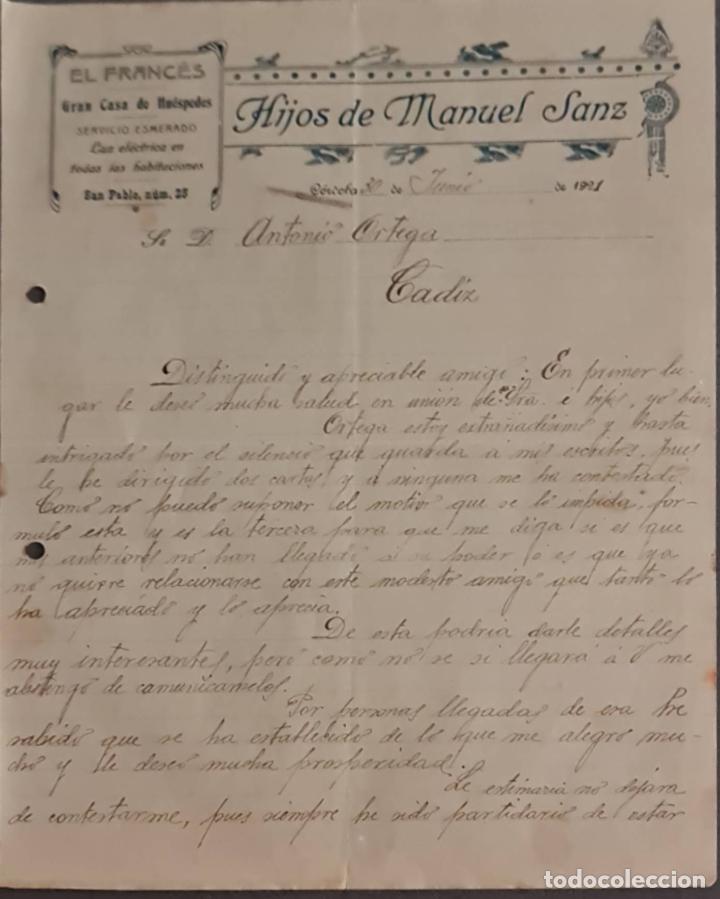 EL FRANCÉS
Gran Casa de Huéspedes
SERVICIO ESMERADO
Luz eléctrica en
todas las habitaciones
San Pablo, núm. 25
Hijos de Manuel Sanz
Córdoba 20 de Junio de 1921
Sr D. Antonio Ortega
Cadiz
Distinguido y apreciable amigo: En primer lu-
gar le deseo mucha salud en unión de Sra. é hijos, yo bien.
Ortega estoy extrañadisimo y hasta
intrigado por el silencio que guarda á mis escritos, pues
le he dirigido dos cartas y á ninguna me ha contestado.
Como no puedo suponer el motivo que se lo impida, for-
mulo esta y es la tercera para que me diga si es que
mis anteriores no han llegado á su poder ó es que ya
no quiere relacionarse con este modesto amigo que tanto lo
ha apreciado y lo aprecia.
De esta podria darle detalles
muy interesantes, pero como no se si llegará á V me
abstengo de camunicarselos.
Por personas llegadas de esa he
sabido que se ha establecido de lo que me alegro mu-
cho y le deseo mucha prosperidad.
Le estimaria no dejara
de contestarme, pues siempre he sido partidario de estar
todocoleccion.net